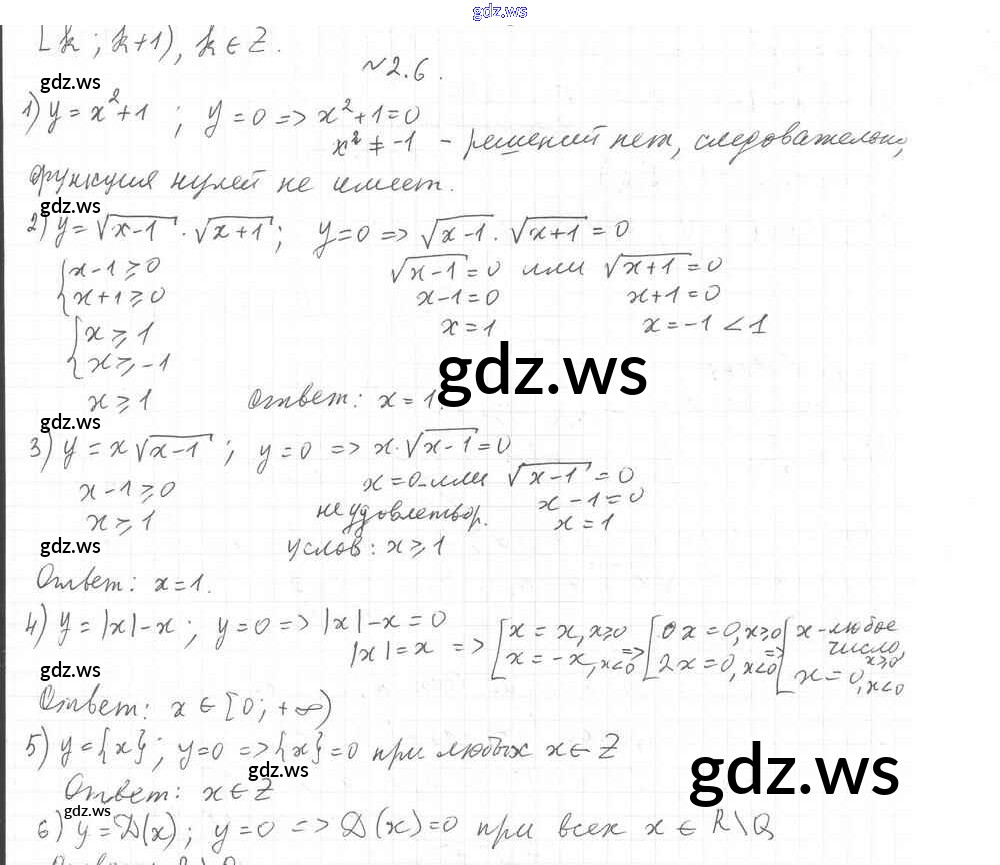 gdz.ws
[k; k+1), k ∈ Z.
№2.6.
gdz.ws
1) y = x²+1; y=0 => x²+1=0
x² ≠ -1 - решений нет, следовательно,
функция нулей не имеет.
gdz.ws
2) y = √x-1 · √x+1; y=0 => √x-1 · √x+1 = 0
{ x-1 ≥ 0 √x-1 = 0 или √x+1 = 0
x+1 ≥ 0 x-1=0 x+1=0
{ x ≥ 1 x=1 x=-1 < 1
x ≥ -1
gdz.ws
x ≥ 1 Ответ: x=1.
gdz.ws
3) y = x√x-1; y=0 => x·√x-1 = 0
x-1 ≥ 0 x=0 или √x-1 = 0
x ≥ 1 не удовлетвор. x-1=0
x=1
gdz.ws
услов: x ≥ 1
Ответ: x=1.
4) y = |x|-x; y=0 => |x|-x=0
|x|=x => [ x=x, x≥0 => [ 0x=0, x≥0 => [ x-любое число, x≥0
x=-x, x<0 2x=0, x<0 x=0, x<0
gdz.ws
Ответ: x ∈ [0; +∞)
5) y={x}; y=0 => {x}=0 при любых x ∈ Z
gdz.ws
gdz.ws
Ответ: x ∈ Z
gdz.ws
6) y = D(x); y=0 => D(x)=0 при всех x ∈ R\Q